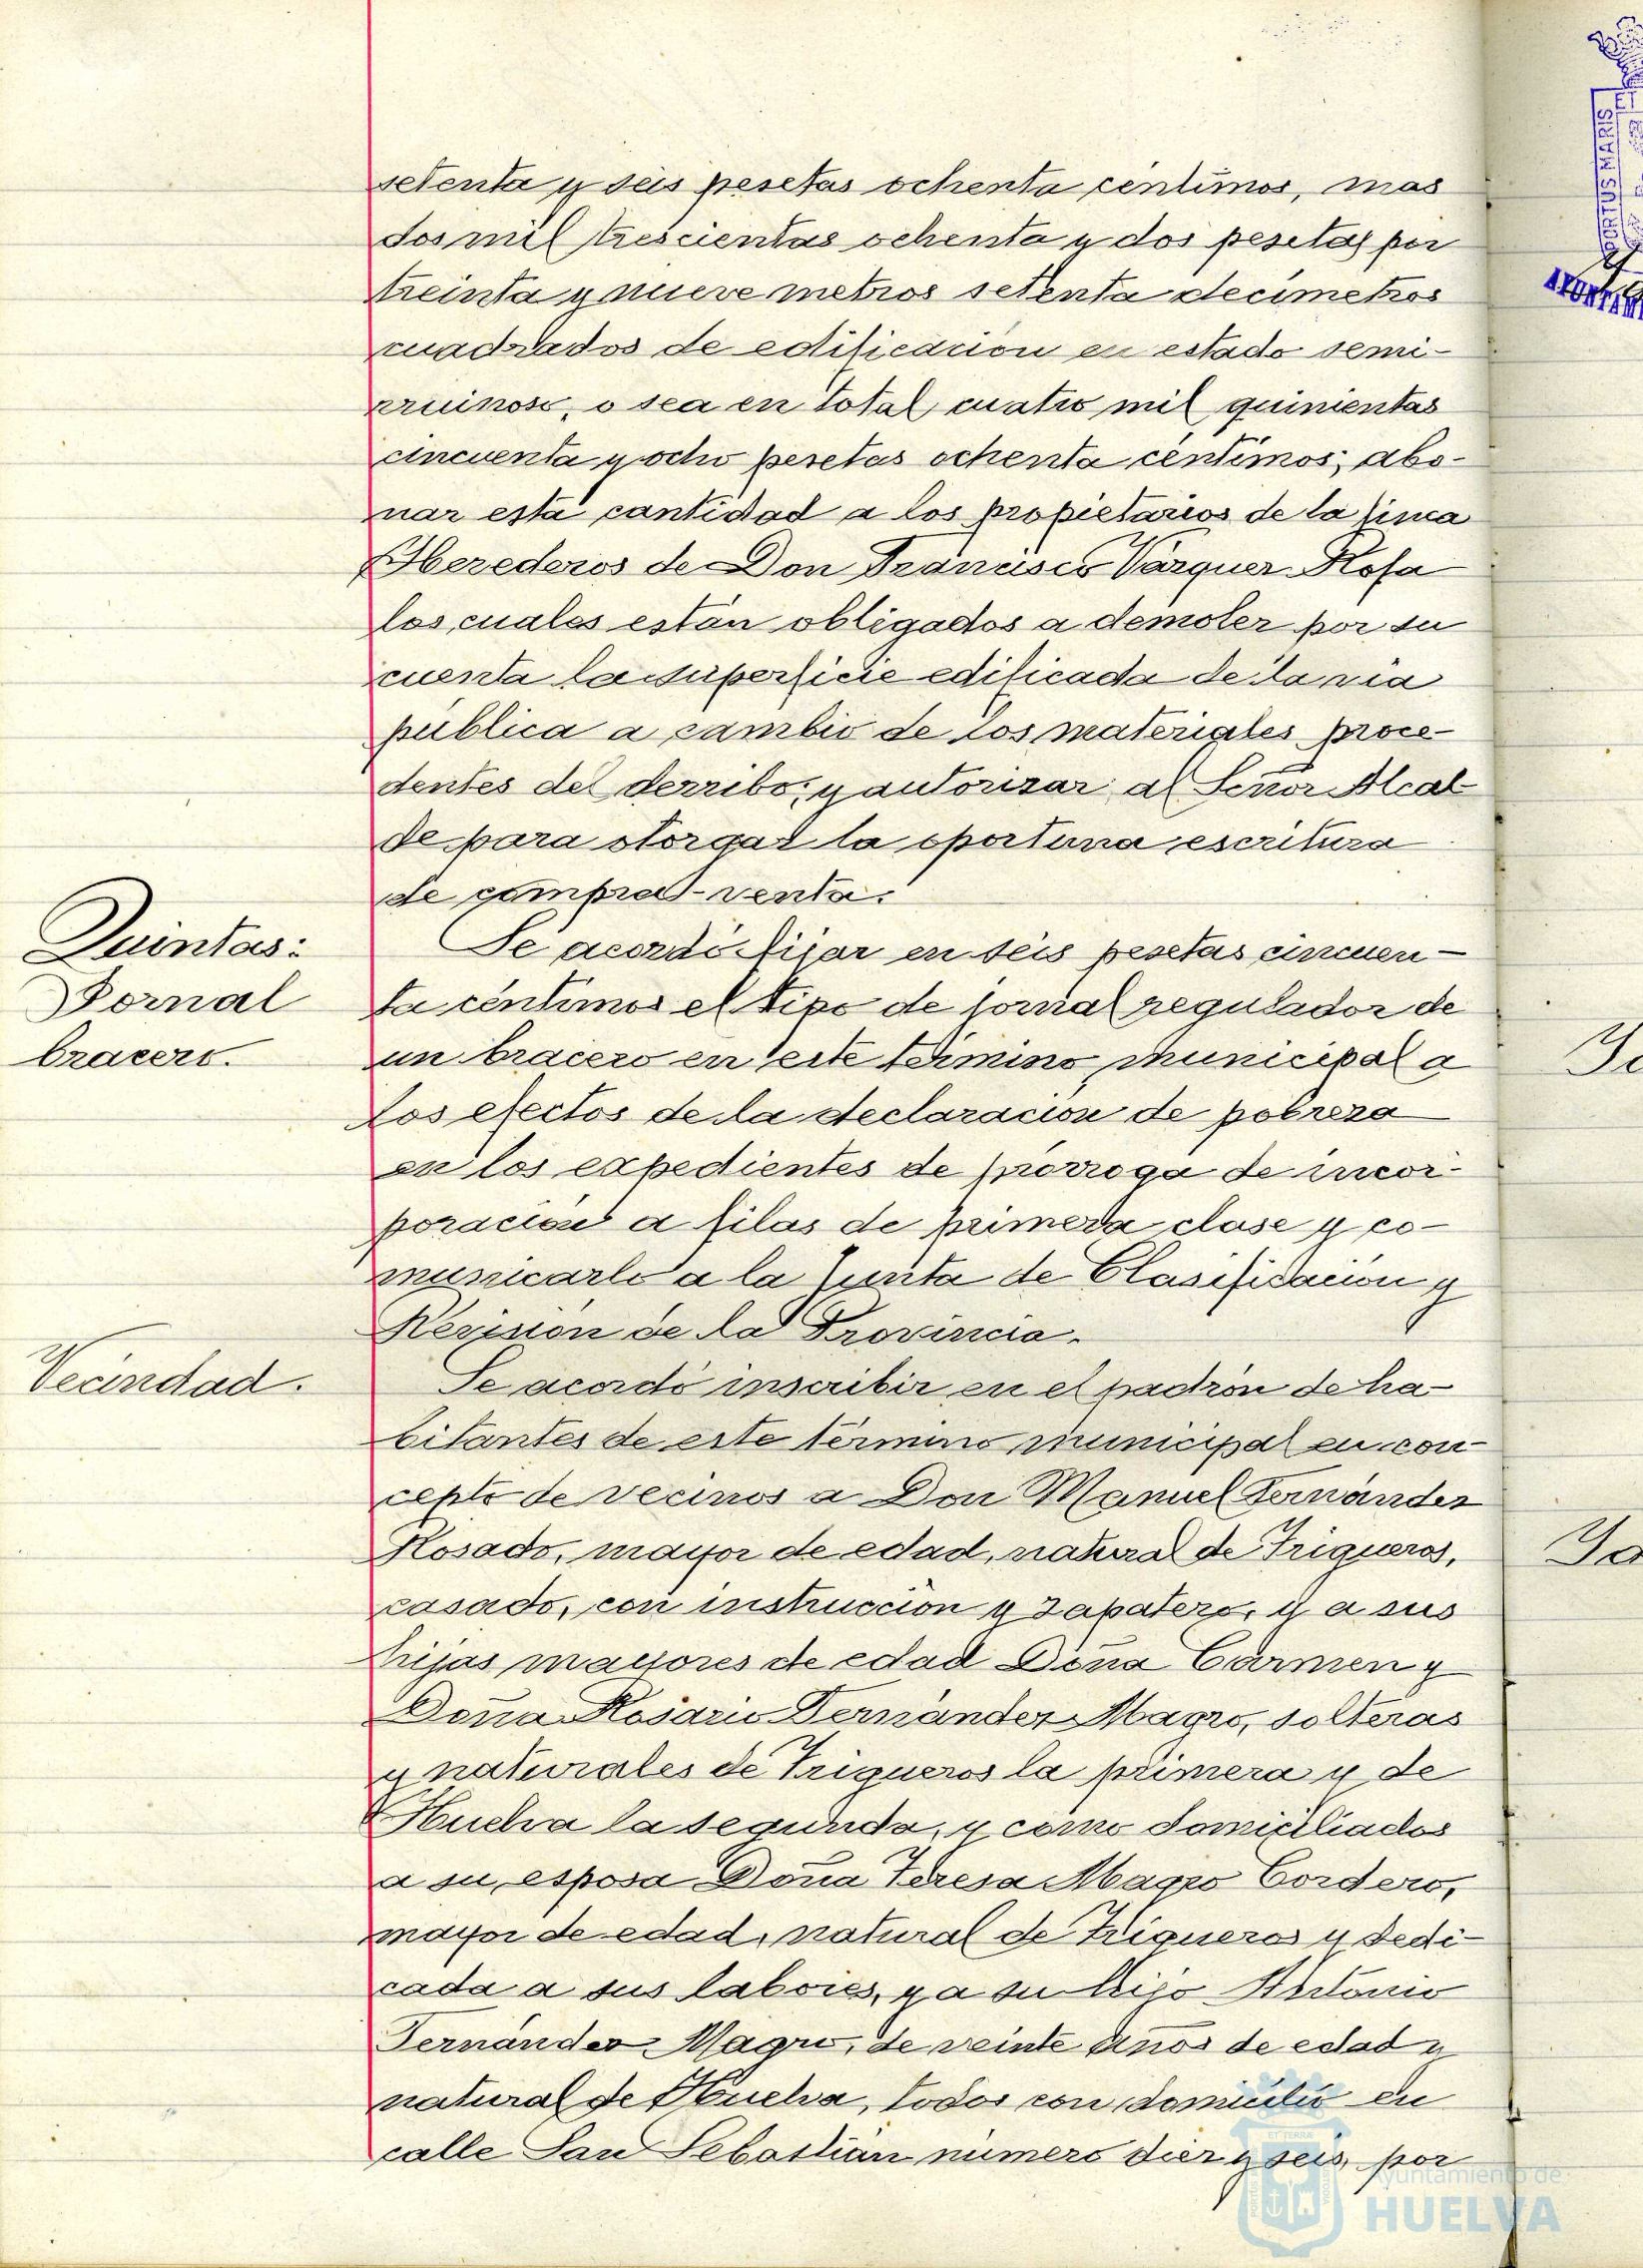 setenta y seis pesetas ochenta centimos, mas
dos mil trescientas ochenta y dos pesetas por
treinta y nueve metros setenta decimetros
cuadrados de edificación en estado semi-
rruinoso, o sea en total cuatro mil quinientas
cincuenta y ocho pesetas ochenta centimos; abo-
nar esta cantidad a los propietarios de la finca
Herederos de Don Francisco Vázquez Rosa
los cuales están obligados a demoler por su
cuenta la superficie edificada de la via
publica a cambio de los materiales proce-
dentes del derribo; y autorizar al Señor Alcal-
de para otorgar la oportuna escritura
de compra-venta.
Quintas:
Jornal
bracero.
Se acordó fijar en seis pesetas cincuen-
ta céntimos el tipo de jornal regulador de
un bracero en este término municipal a
los efectos de la declaracion de pobreza
en los expedientes de prórroga de incor-
poracion a filas de primera clase y co-
municarlo a la Junta de Clasificacion y
Revision de la Provincia.
Vecindad.
Se acordó inscribir en el padrón de ha-
bitantes de este término municipal en con-
cepto de vecinos a Don Manuel Fernández
Rosado, mayor de edad, natural de Trigueros,
casado, con instruccion y zapatero, y a sus
hijas mayores de edad Doña Carmen y
Doña Rosario Fernández Magro, solteras
y naturales de Trigueros la primera y de
Huelva la segunda, y como domiciliados
a su esposa Doña Teresa Magro Cordero,
mayor de edad, natural de Trigueros y dedi-
cada a sus labores, y a su hijo Antonio
Fernández Magro, de veinte años de edad y
natural de Huelva, todos con domicilio en
calle San Sebastián número diez y seis, por
PORTUS MARIS ET
AYUNTAM
Ayuntamiento de
HUELVA